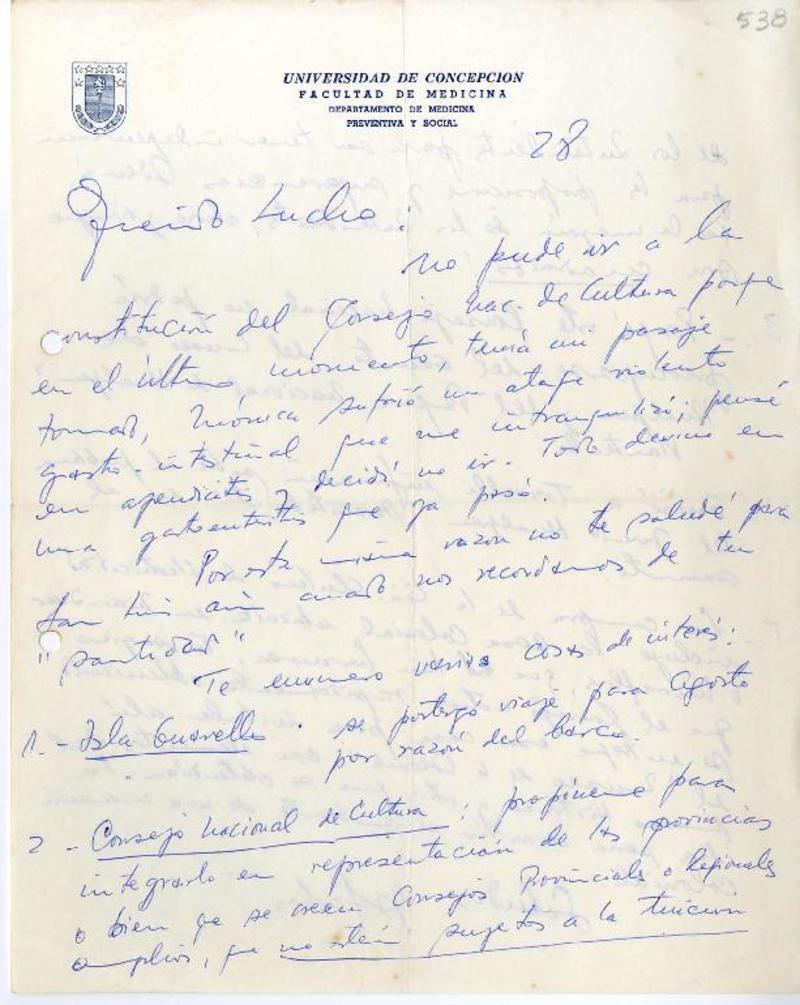 538
UNIVERSIDAD DE CONCEPCION
FACULTAD DE MEDICINA
DEPARTAMENTO DE MEDICINA
PREVENTIVA Y SOCIAL
28
Querido Lucho:
No pude ir a la
constitución del Consejo Nac. de Cultura porque
en el último momento, tenía mi pasaje
tomado, Mónica sufrió un ataque violento
gastro-intestinal que me intranquilizó; pensé
en apendicitis y decidí no ir. Todo devino en
una gastroenteritis que ya pasó.
Por esta misma razón no te saludé para
San Luis aún cuando nos recordamos de tu
"santidad"
Te enumero varias cosas de interés:
1. - Isla Guarello. se postergó viaje para Agosto
por razón del barco.
2 - Consejo Nacional de Cultura: propóneme para
integrarlo en representación de las provincias
o bien que se creen Consejos Provinciales o Regionales
amplios, que no estén sujetos a la tuición